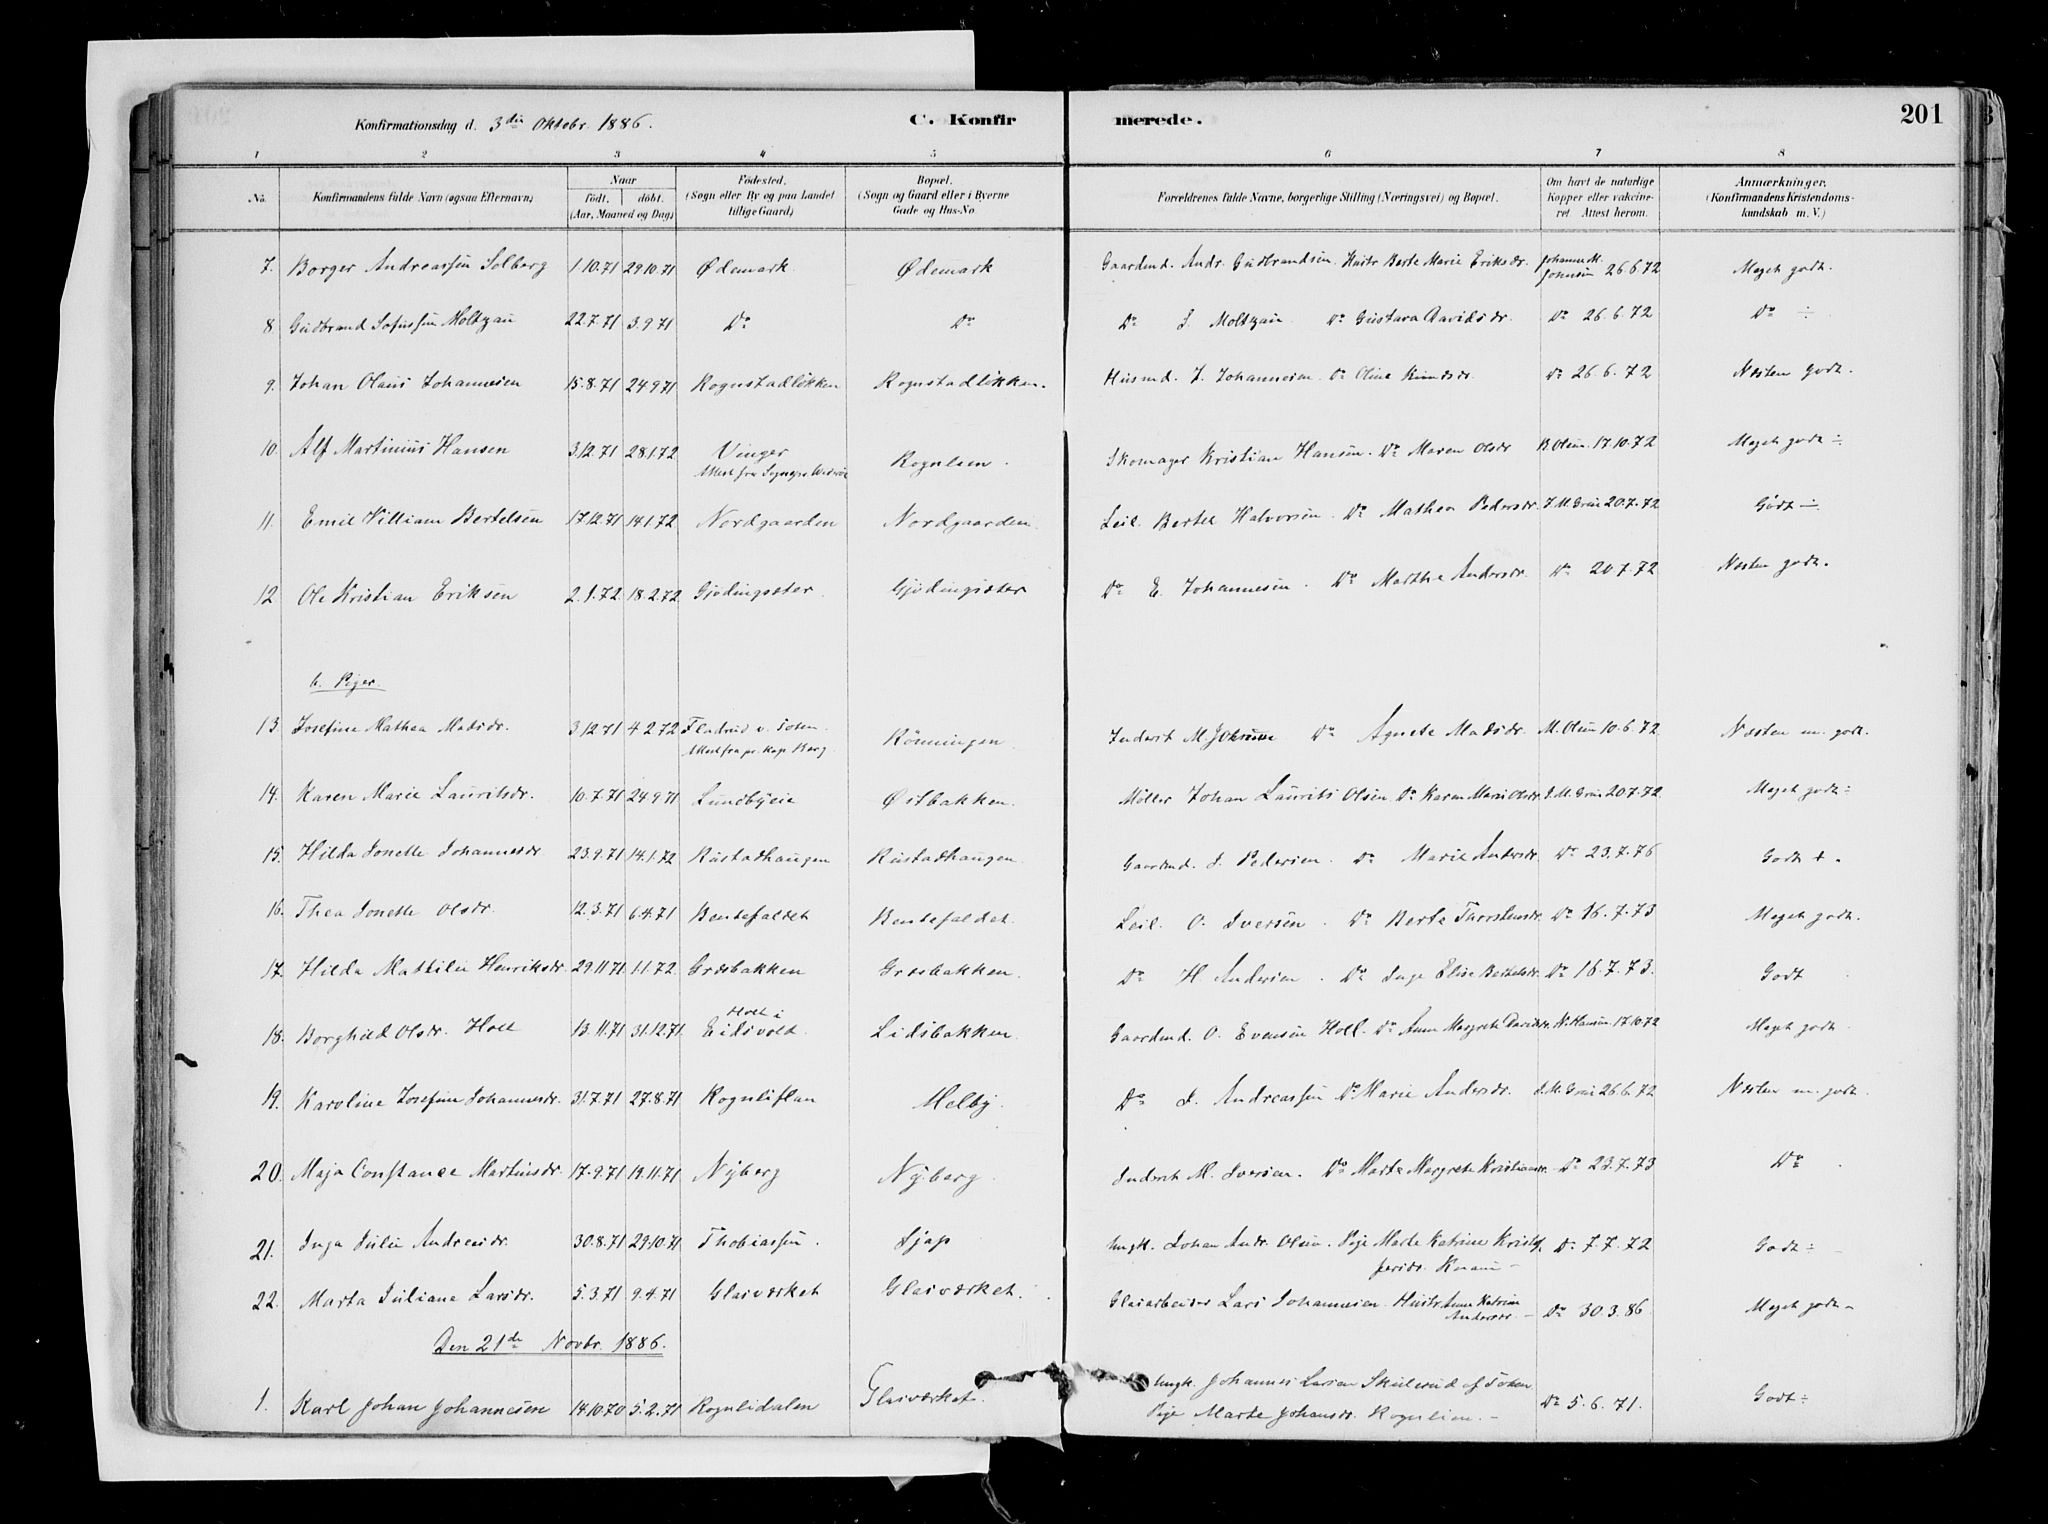 Konfirmationsdag d. 3die Oktobr. 1886. C. Konfirmerede. 201
1 2 3 4 5 6 7 8
No. Konfirmandens fulde Navn (ogsaa Efternavn) Naar født. døbt. (Aar, Maaned og Dag) Fødested. (Sogn eller By og paa Landet tillige Gaard) Bopæl. (Sogn og Gaard eller i Byerne Gade og Hus-No. Forældrenes fulde Navne, borgerlige Stilling (Næringsvei) og Bopæl. Om havt de naturlige Kopper eller vakcineret. Attest herom. Anmærkninger. (Konfirmandens Kristendomskundskab m. V.)
7. Borger Andreassen Solberg 1.10.71 29.10.71 Ødemark Ødemark Gaardmd. Andr. Gudbrandsen Hustr. Berte Marie Eriksdr. Johanne M. Johnsen 26.6.72 Meget godt.
8. Gudbrand Sofussen Moltzau 22.7.71 3.9.71 Do Do Do S. Moltzau Do Gustava Davidsdr. Do 26.6.72 Do ÷
9. Johan Olaus Johannesen 15.8.71 24.9.71 Rognstadløkken Rognstadløkken. Husmd. J. Johannesen Do Oline Knudsdr. Do 26.6.72 Næsten godt.
10. Alf Martinius Hansen 3.12.71 28.1.72 Vinger Attest fra Sognepr. Rognlien. Skomager Kristian Hansen. Do Maren Olsdr B. Olsen 17.10.72 Meget godt ÷
11. Emil Villiam Bertelsen 17.12.71 14.1.72 Nordgaarden Nordgaarden. Leil. Bertel Halvorsen. Do Mathea Pedersdr. J. M. Grin 20.7.72 Godt ÷
12. Ole Kristian Eriksen 2.1.72. 18.2.72 Gjødingsæter Gjødingsæter Do E. Johannesen. Do Marthe Andersdr. Do 20.7.72 Næsten godt.
b. Piger.
13. Josefine Mathea Madsdr. 3.12.71 4.2.72 Fladrud v. Toten Attest fra pr. Kap. Berg. Rønningen Inderst M. Johnsen Do Agnete Madsdr. M. Olsen 10.6.72 Næsten m. godt.
14. Karen Marie Lauritsdr. 10.7.71 24.9.71 Lundbyeie Østbakken. Møller Johan Laurits Olsen. Do Karen Marie Olsdr. J. M. Grin 20.7.72 Meget godt ÷
15. Hilda Jonette Johannesdr 23.9.71 14.1.72 Rustadhaugen Rustadhaugen. Gaardmd. J. Pedersen. Do Marie Andersdr. Do 23.7.76 Godt +.
16. Thea Jonette Olsdr. 12.3.71 6.4.71 Bentefaldet Bentefaldet. Leil. O. Iversen. Do Berte Thorstensdr. Do 16.7.73 Meget godt.
17. Hilda Mathilde Henriksdr. 29.11.71 1.1.72. Græsbakken Græsbakken. Do H. Andersen. Do Inge Elise Bertelsdr. Do 16.7.73. Godt
18. Borghild Olsdr. Holt 13.11.71 31.12.71 Holt i Eidsvold Lidsbakken. Gaardmd. O. Evensen Holt. Do Anne Margrete Davidsdr. N. Hansen 17.10.72 Meget godt
19. Karoline Josefine Johannesdr. 31.7.71 27.8.71 Rognliflan Melby. Do J. Andreassen Do Marie Andersdr. J. M. Grin 26.6.72 Næsten m. godt.
20. Maja Constance Martinsdr. 17.9.71 19.11.71 Nyberg Nyberg. Inderst M. Iversen. Do Marte Margrete Kristiansdr. Do 23.7.73 Do
21. Inga Julie Andreasdr. 30.8.71 29.10.71 Thobiassen. Sjap Ungk. Johan Andr. Olsen. Pige Marte Katrine Kristofersdr. Knain – Do 7.7.72 Godt ÷
22. Marta Juliane Larsdr. 5.3.71 9.4.71 Glasværket Glasværket. Glasarbeider Lars Johannesen Hustr. Anne Katrine Andersdr. – Do 30.3.86 Meget godt –
Den 21de Novbr. 1886.
1. Karl Johan Johannesen 14.10.70 5.2.71 Rognlidalen Glasværket. Ungk. Johannes Larsen Skulerud af Toten
Pige Marte Johansdr. Rognlien. – Do 5.6.71. Godt ÷